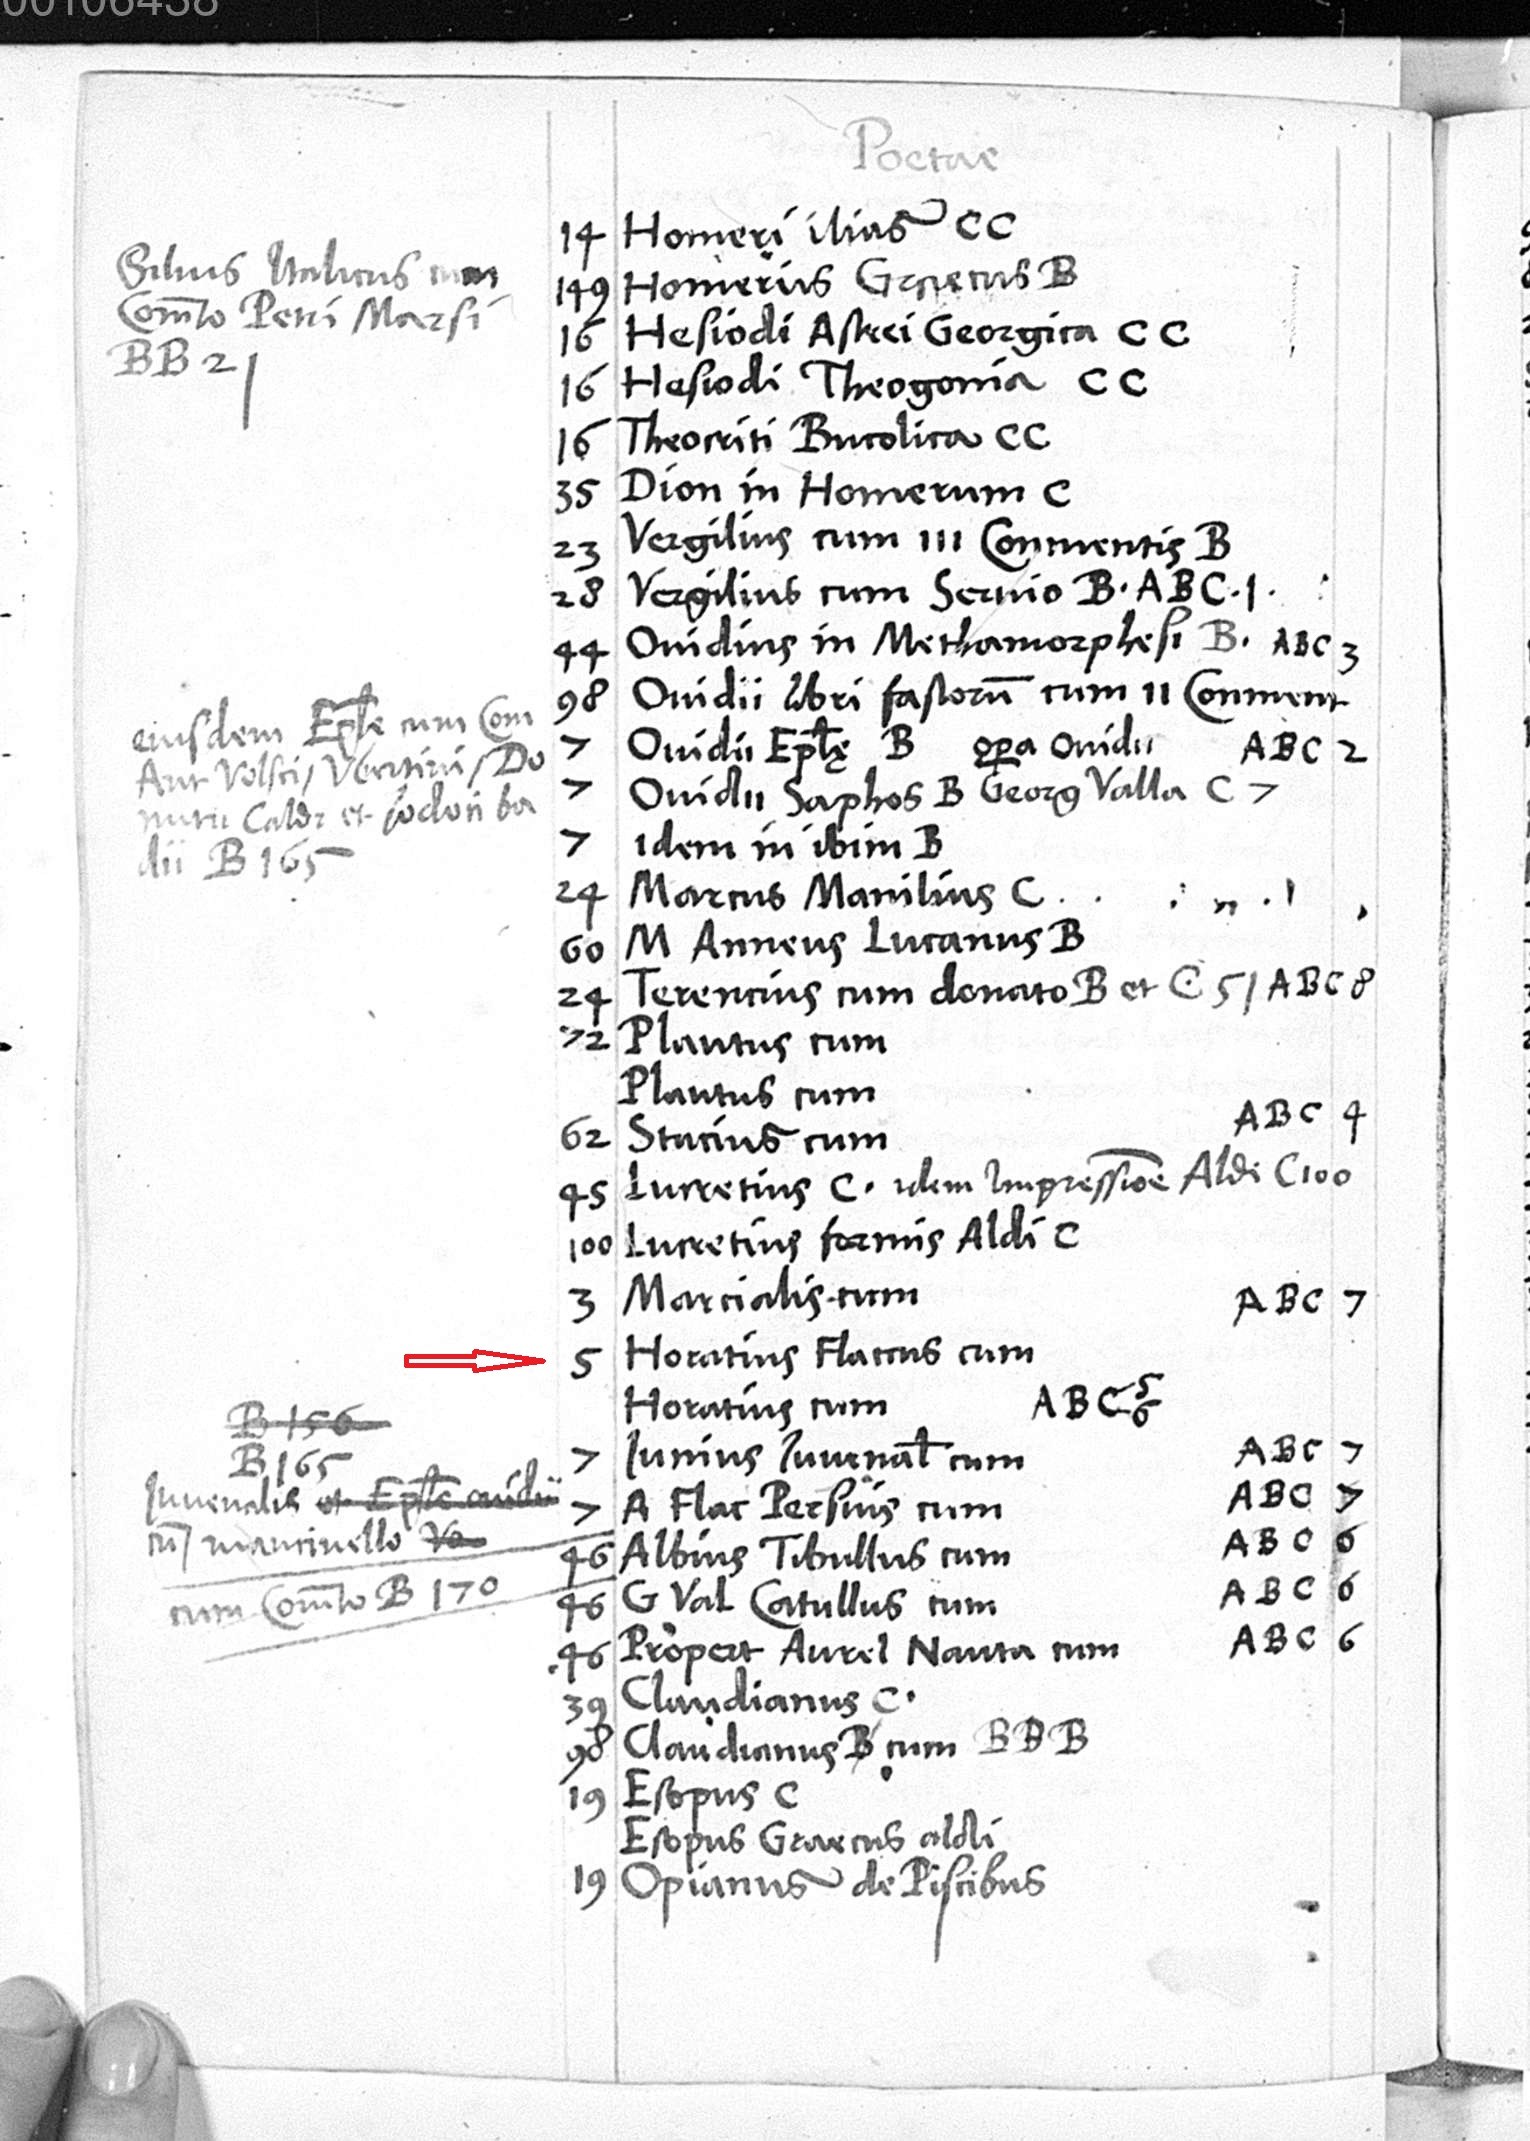 00106438
Poetae
14 Homeri ilias CC
149 Homerus Graecus B
16 Hesiodi Askrei Georgica C C
16 Hesiodi Theogonia C C
16 Theocriti Bucolica CC
35 Dion in Homerum C
23 Vergilius cum III Commentis B
28 Vergilius cum Seruio B. ABC. 1.
44 Ouidius in Methamorphesi B. ABC 3
98 Ouidii libri fastorū cum II Conment
7 Ouidii Eplę B opa Ouidii ABC 2
7 Ouidii Saphos B Georg Valla C 7
7 idem in ibim B
24 Marcus Manilius C
60 M Anneus Lucanus B
24 Terencius cum donato B et C 51 ABC 8
72 Plautus cum
Plautus cum
62 Stacius cum ABC 4
45 Lucretius C. idem Impressiōe Aldi C100
100 Lucretius formis Aldi C
3 Marcialis cum ABC 7
5 Horatius Flaccus cum
Horatius cum ABC 5 6
7 Iunius Iuuenal cum ABC 7
7 A Flac Persius cum ABC 7
46 Albius Tibullus cum ABC 6
46 G Val Catullus cum ABC 6
46 Propert Aurel Nauta cum ABC 6
39 Claudianus C.
98 Claudianus B cum BBB
19 Esopus C
Esopus Graecus aldi
19 Opianus de Piscibus
Silius Italicus cum
Comto Petri Marsi
BB 21
eiusdem Eple cum Com
Ant Volsci /
Caldr et Jodoci ba
dii B 165
B 156
B 165
Iuuenalis et Eple ouidii
cū mancinello Vo
cum Comto B 170